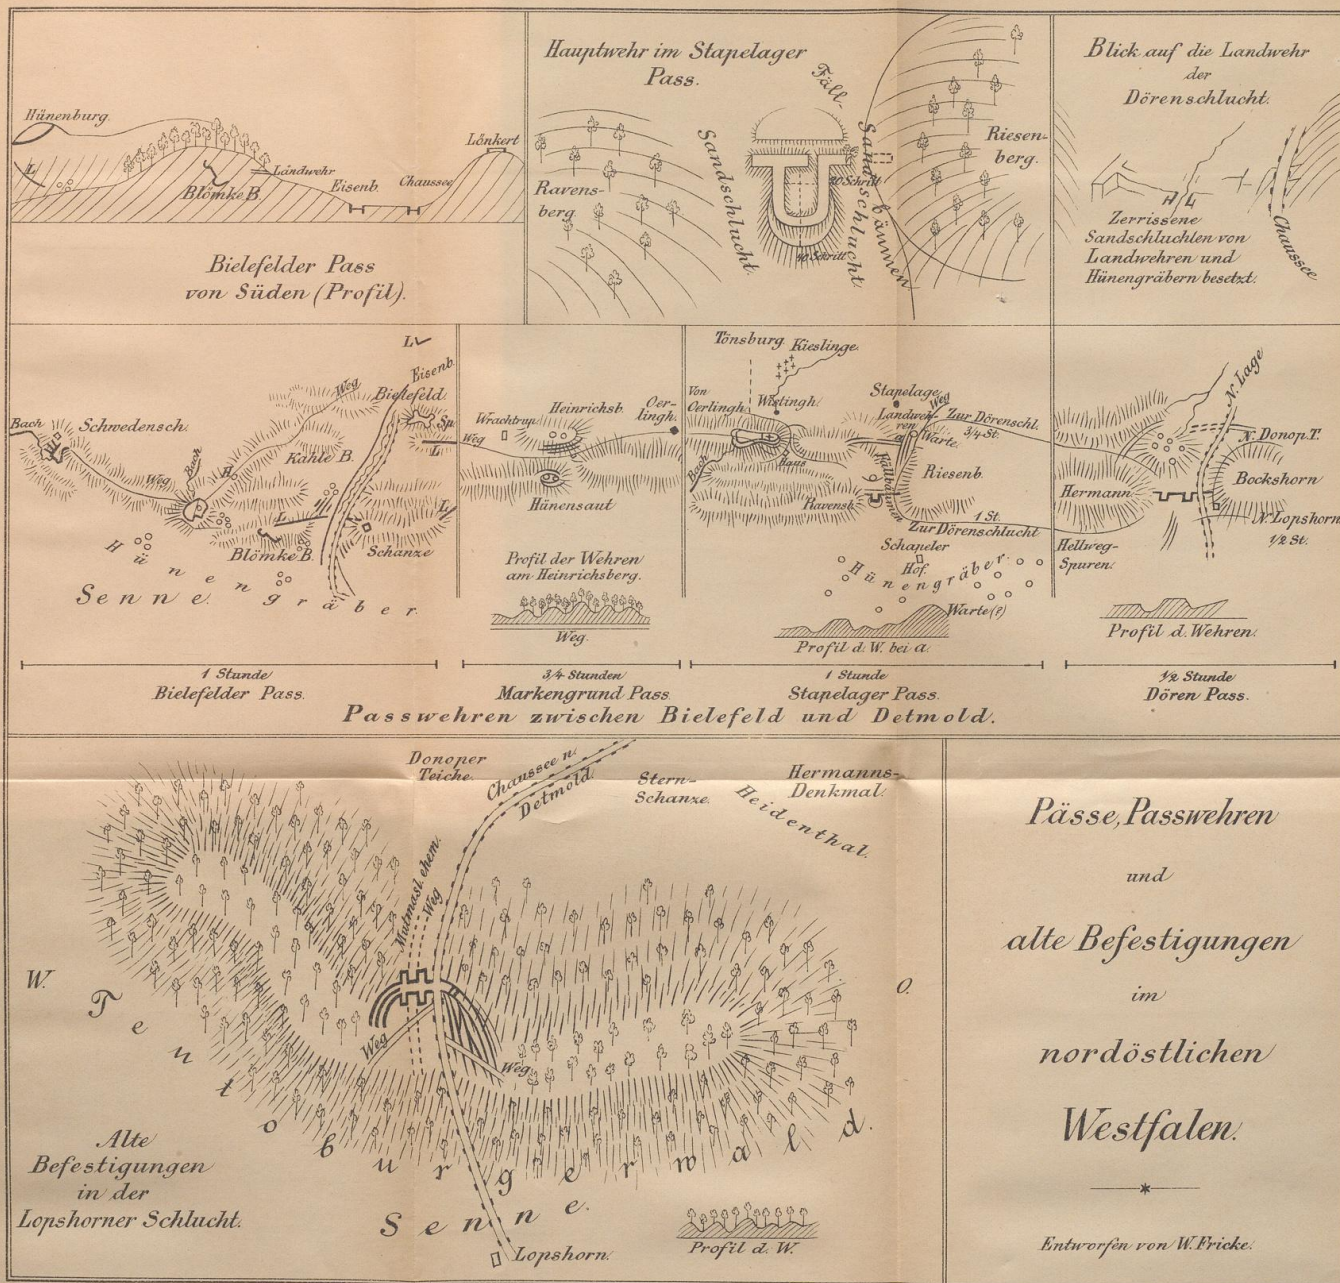 Hünenburg.
L
Blömke B.
Landwehr
Eisenb.
Chaussee
Lönkert
Bielefelder Pass
von Süden (Profil).
Hauptwehr im Stapelager
Pass.
Ravens-
berg.
Sandschlucht
Fäll-
bäumen
Sandschlucht
20 Schritt
40 Schritt
Riesen-
berg.
Blick auf die Landwehr
der
Dörenschlucht.
Zerrissene
Sandschluchten von
Landwehren und
Hünengräbern besetzt.
Chaussee
L
Eisenb.
Bielefeld.
Sp.
L
Weg
Bach
Schwedensch.
Kahle B.
Bach
Weg
L
L
Blömke B.
Schanze
Hünengräber.
Senne.
Wrachtrup.
Weg
Heinrichsb.
Oer-
lingh.
Hünensaut
Profil der Wehren
am Heinrichsberg.
Weg.
Tönsburg
Kieslinge.
Von
Oerlingh.
Wistingh.
Stapelage
Landweh-
ren
Weg
Zur Dörenschl.
3/4 St.
a
Warte
Bach
Haus
Riesenb.
Fällbäumen
Ravensb.
1 St.
Zur Dörenschlucht
Schapeler
Hof.
Hünengräber.
Warte (?)
Profil d. W. bei a.
N. Lage
N. Donop. T.
Bockshorn
Hermann
N. Lopshorn
1/2 St.
Hellweg-
Spuren.
Profil d. Wehren.
1 Stunde
Bielefelder Pass.
3/4 Stunden
Markengrund Pass.
1 Stunde
Stapelager Pass.
1/2 Stunde
Dören Pass.
Passwehren zwischen Bielefeld und Detmold.
Donoper
Teiche.
Chaussee n.
Detmold.
Stern-
Schanze.
Hermanns-
Denkmal.
Heidenthal.
Mutmasl. ehem.
Weg
W.
O.
Weg
Weg
Teutoburgerwald.
Senne.
Alte
Befestigungen
in der
Lopshorner Schlucht.
Lopshorn.
Profil d. W.
Pässe, Passwehren
und
alte Befestigungen
im
nordöstlichen
Westfalen.
Entworfen von W. Fricke.